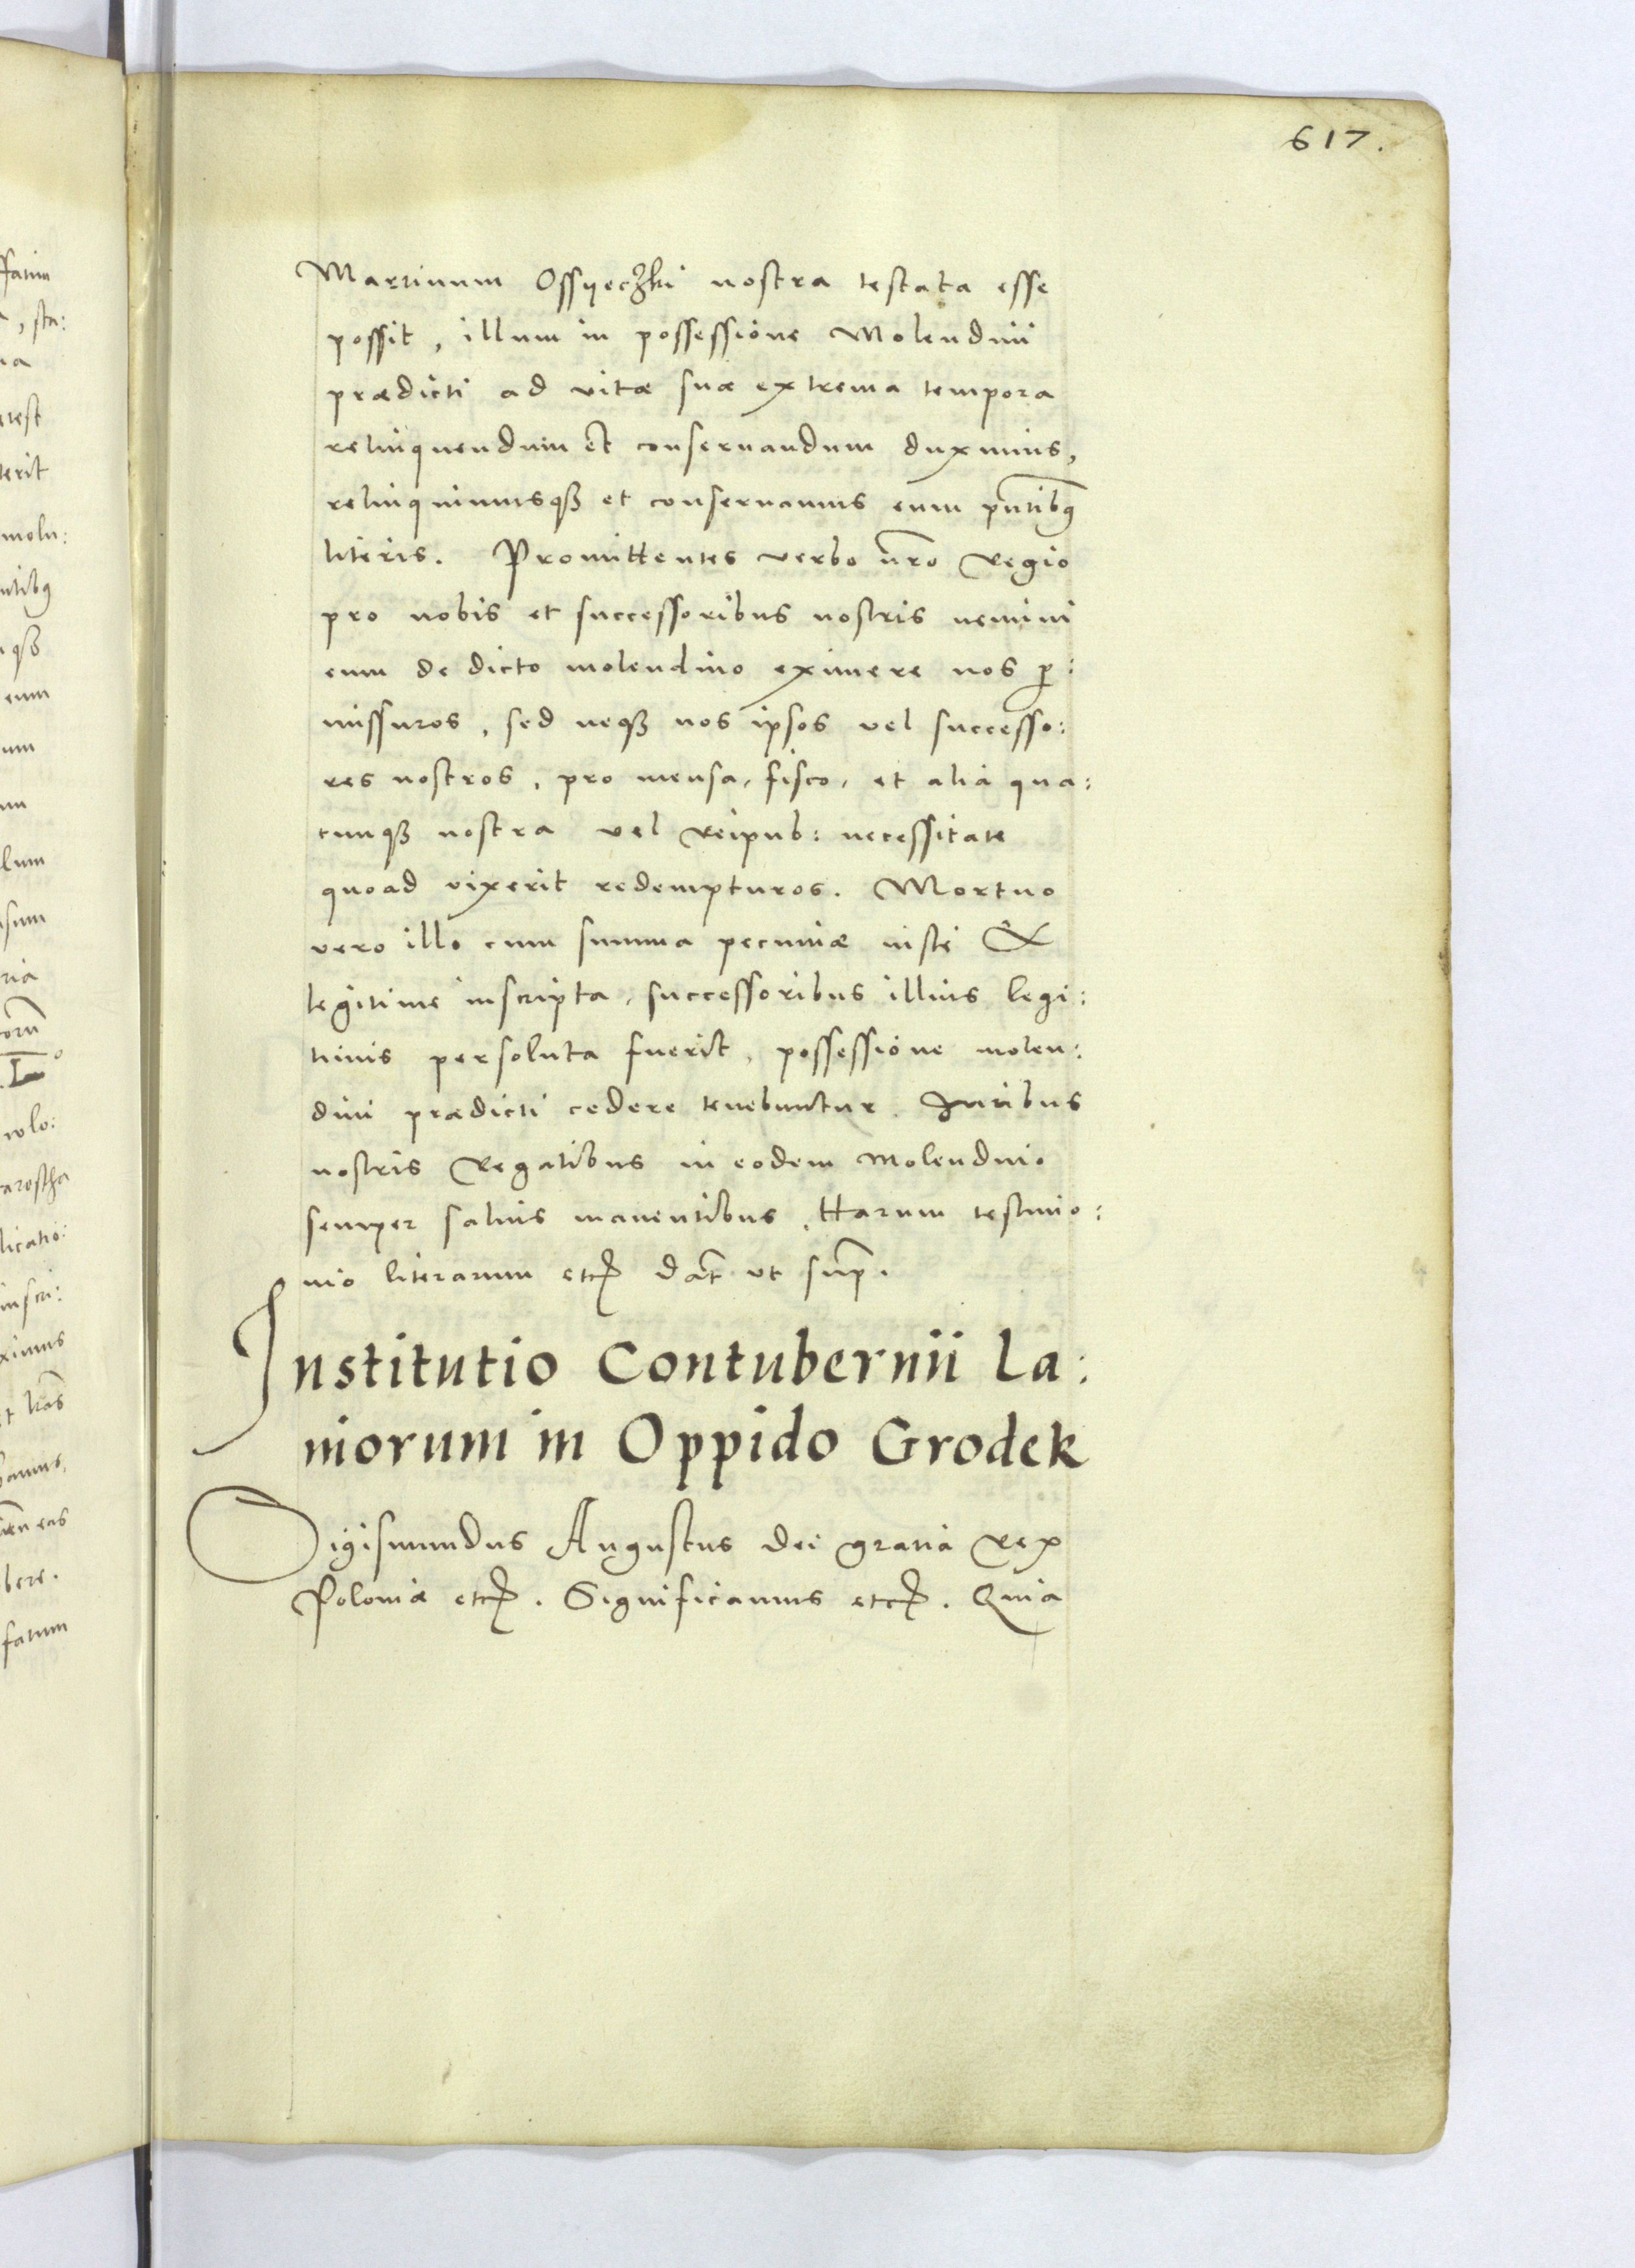 617.
Martinum Ossyeczki nostra testata esse
possit, illum in possessione Molendini
prædicti ad vitæ suæ extrema tempora
relinquendum et conseruandum duximus,
relinquimusqȝ et conseruamus eum pñtibꝰ
literis. Promittentes verbo nr̃o Regio
pro nobis et successoribus nostris nemini
eum de dicto molendino eximere nos ꝑ:
missuros, sed neqȝ nos ipsos vel successo:
res nostros, pro mensa, fisco, et alia qua:
cunqȝ nostra vel Reipub: necessitate
quoad vixerit redempturos. Mortuo
vero illo cum summa pecuniæ iuste &
legitime inscripta, successoribus illius legi:
timis persoluta fuerit, possessione molen:
dini prædicti cedere tenebuntur. Juribus
nostris Regalibus in eodem Molendino
semper saluis manentibus, Harum testimo:
nio literarum etc̃ Dat̃ ut sup̃.
Institutio Contubernii La:
niorum in Oppido Grodek
Sigismundus Augustus dei gratia Rex
Poloniæ etc̃. Significamus etc̃. Quia